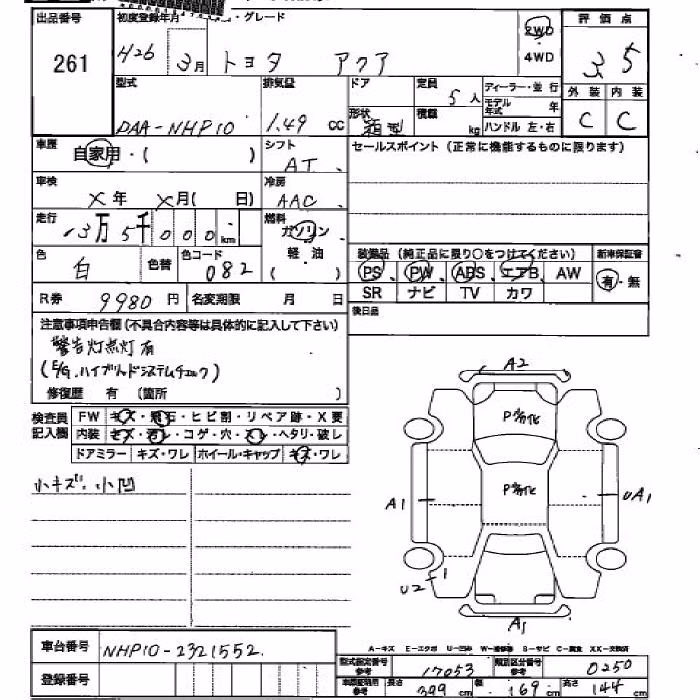 出品番号
261
初度登録年月
・グレード
H26 3月
トヨタ アクア
2WD
4WD
評価点
3.5
外装 内装
C C
型式
DAA-NHP10
排気量
1.49 cc
ドア
形状
箱型
定員
5人
積載
kg
ディーラー・並行
モデル年式 年
ハンドル 左・右
車歴
自家用・( )
シフト
AT
セールスポイント (正常に機能するものに限ります)
車検
X年 X月( 日)
冷房
AAC
走行
13万5千000km
燃料
ガソリン
軽・油
( )
色
白
色替
色コード
082
装備品 (純正品に限り○をつけてください)
PS PW ABS エアB AW
SR ナビ TV カワ
新車保証書
有・無
R券 9980円
名変期限 月 日
後日品
注意事項申告欄 (不具合内容等は具体的に記入して下さい)
警告灯点灯有
(E/G.ハイブリッドシステムチェック)
修復歴 有 (箇所 )
検査員
記入欄
FW キズ・飛石・ヒビ割・リペア跡・X要
内装
コゲ・穴
ヘタリ・破レ
ドアミラー キズ・ワレ ホイール・キャップ キズ・ワレ
小キズ.小凹
A2
P劣化
P劣化
A1
UA1
U2
A1
車台番号
NHP10-2321552.
登録番号
A-キズ E-エクボ U-凹み W-補修跡 S-サビ C-腐食 XX-交換済
型式指定番号
参考
17053
類別区分番号
参考
0250
車庫証明用
参考
長さ 399 cm
幅 169 cm
高さ 144 cm